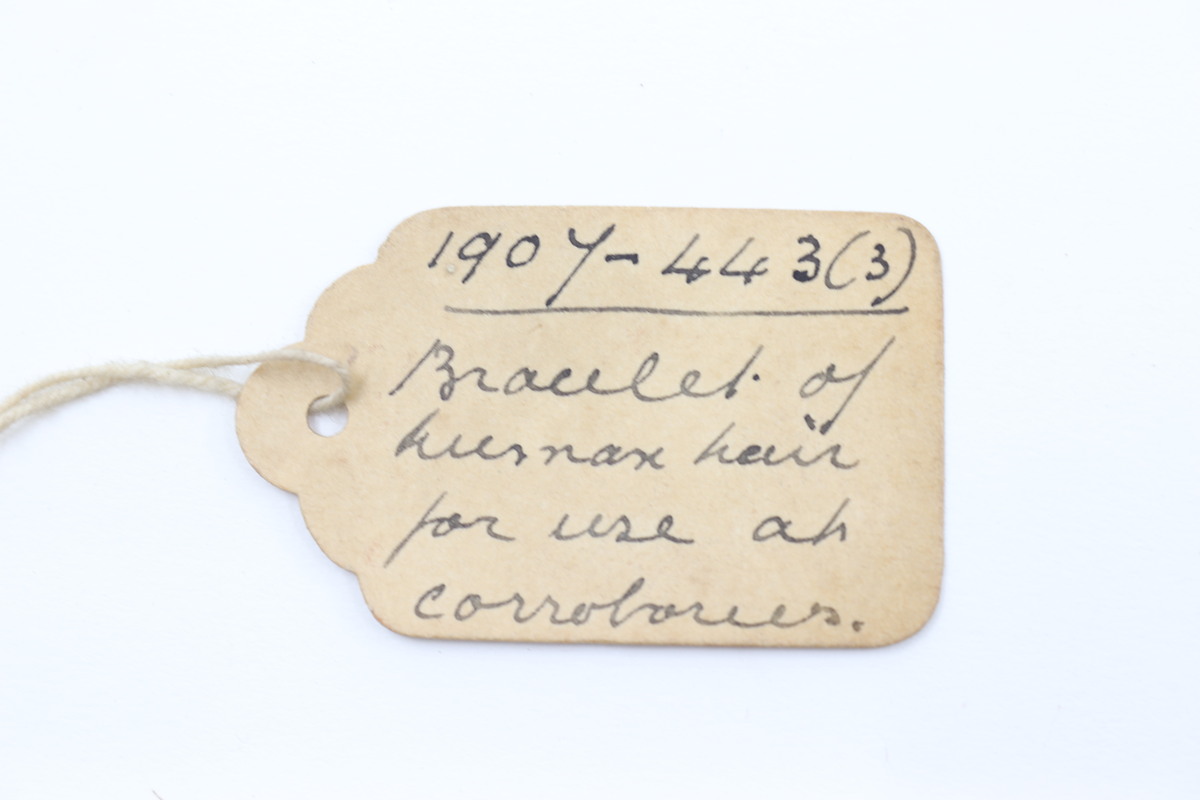 1907-443(3)
Bracelet of
human hair
for use at
corroborees.